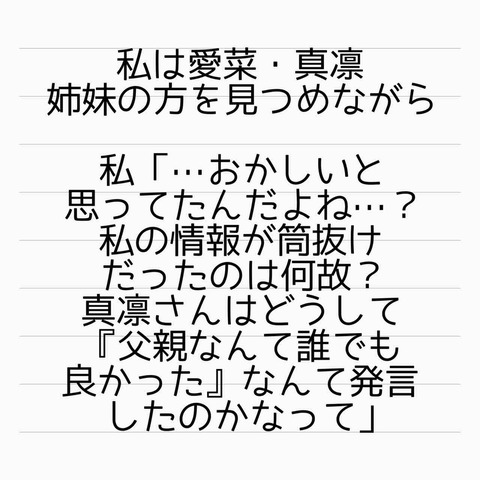 私は愛菜・真凛
姉妹の方を見つめながら
私「…おかしいと
思ってたんだよね…？
私の情報が筒抜け
だったのは何故？
真凛さんはどうして
『父親なんて誰でも
良かった』なんて発言
したのかなって」